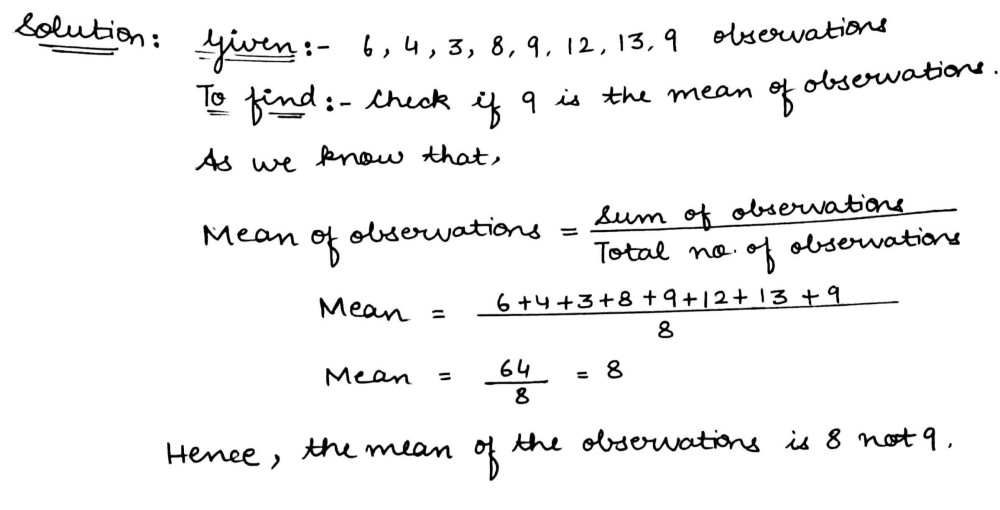 Solution: Given:- 6, 4, 3, 8, 9, 12, 13, 9 observations
To find:- Check if 9 is the mean of observations.
As we know that,
Mean of observations = Sum of observations / Total no. of observations
Mean = 6+4+3+8+9+12+13+9 / 8
Mean = 64 / 8 = 8
Hence, the mean of the observations is 8 not 9.